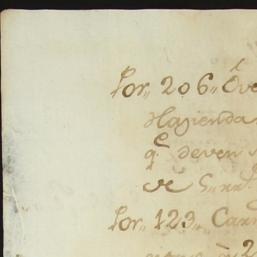 Por,, 206,, Ove
Hazienda
q.e deven
de
Por,, 123,, Carn